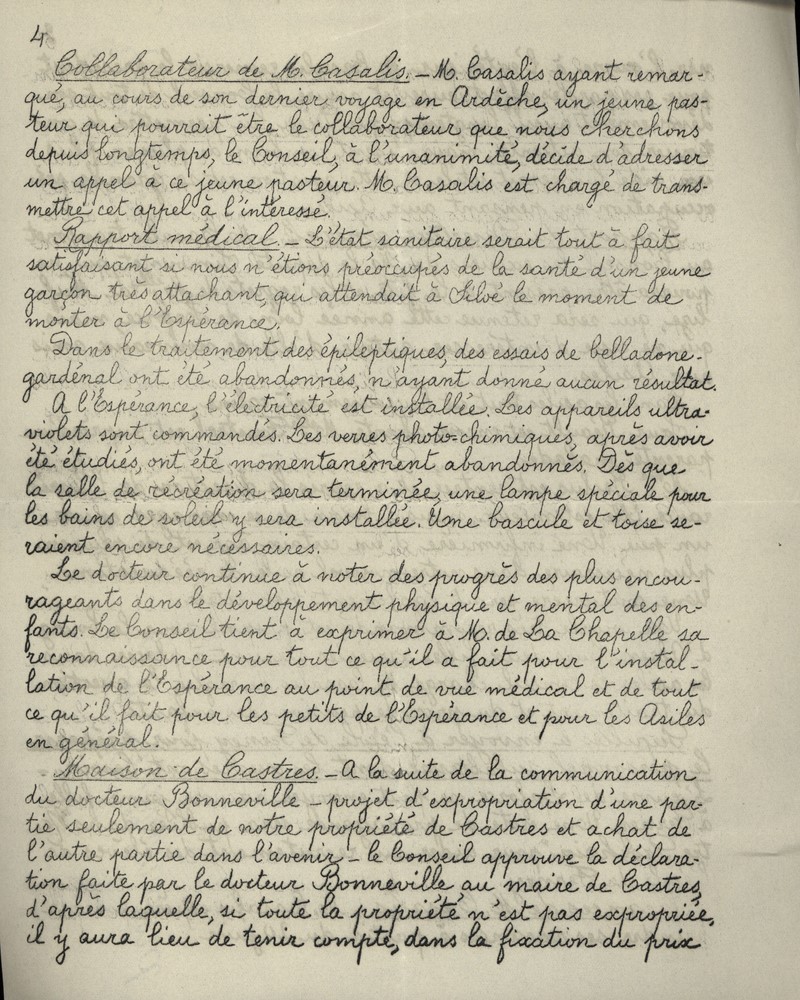 4
Collaborateur de M. Casalis. _ M. Casalis ayant remar-
qué, au cours de son dernier voyage en Ardèche, un jeune pas-
teur qui pourrait être le collaborateur que nous cherchons
depuis longtemps, le Conseil, à l'unanimité, décide d'adresser
un appel à ce jeune pasteur. M. Casalis est chargé de trans-
mettre cet appel à l'intéressé.
Rapport médical. _ L'état sanitaire serait tout à fait
satisfaisant si nous n'étions préoccupés de la santé d'un jeune
garçon très attachant, qui attendait à Siloé le moment de
monter à l'Espérance.
Dans le traitement des épileptiques, des essais de belladone-
gardénal ont été abandonnés, n'ayant donné aucun résultat.
A l'Espérance, l'électricité est installée. Les appareils ultra-
violets sont commandés. Les verres photo-chimiques, après avoir
été étudiés, ont été momentanément abandonnés. Dès que
la salle de récréation sera terminée, une lampe spéciale pour
les bains de soleil y sera installée. Une bascule et toise se-
raient encore nécessaires.
Le docteur continue à noter des progrès des plus encou-
rageants dans le développement physique et mental des en-
fants. Le Conseil tient à exprimer à M. de La Chapelle sa
reconnaissance pour tout ce qu'il a fait pour l'instal-
lation de l'Espérance au point de vue médical et de tout
ce qu'il fait pour les petits de l'Espérance et pour les Asiles
en général.
Maison de Castres. _ A la suite de la communication
du docteur Bonneville _ projet d'expropriation d'une par-
tie seulement de notre propriété de Castres et achat de
l'autre partie dans l'avenir _ le Conseil approuve la déclara-
tion faite par le docteur Bonneville au maire de Castres,
d'après laquelle, si toute la propriété n'est pas expropriée,
il y aura lieu de tenir compte, dans la fixation du prix